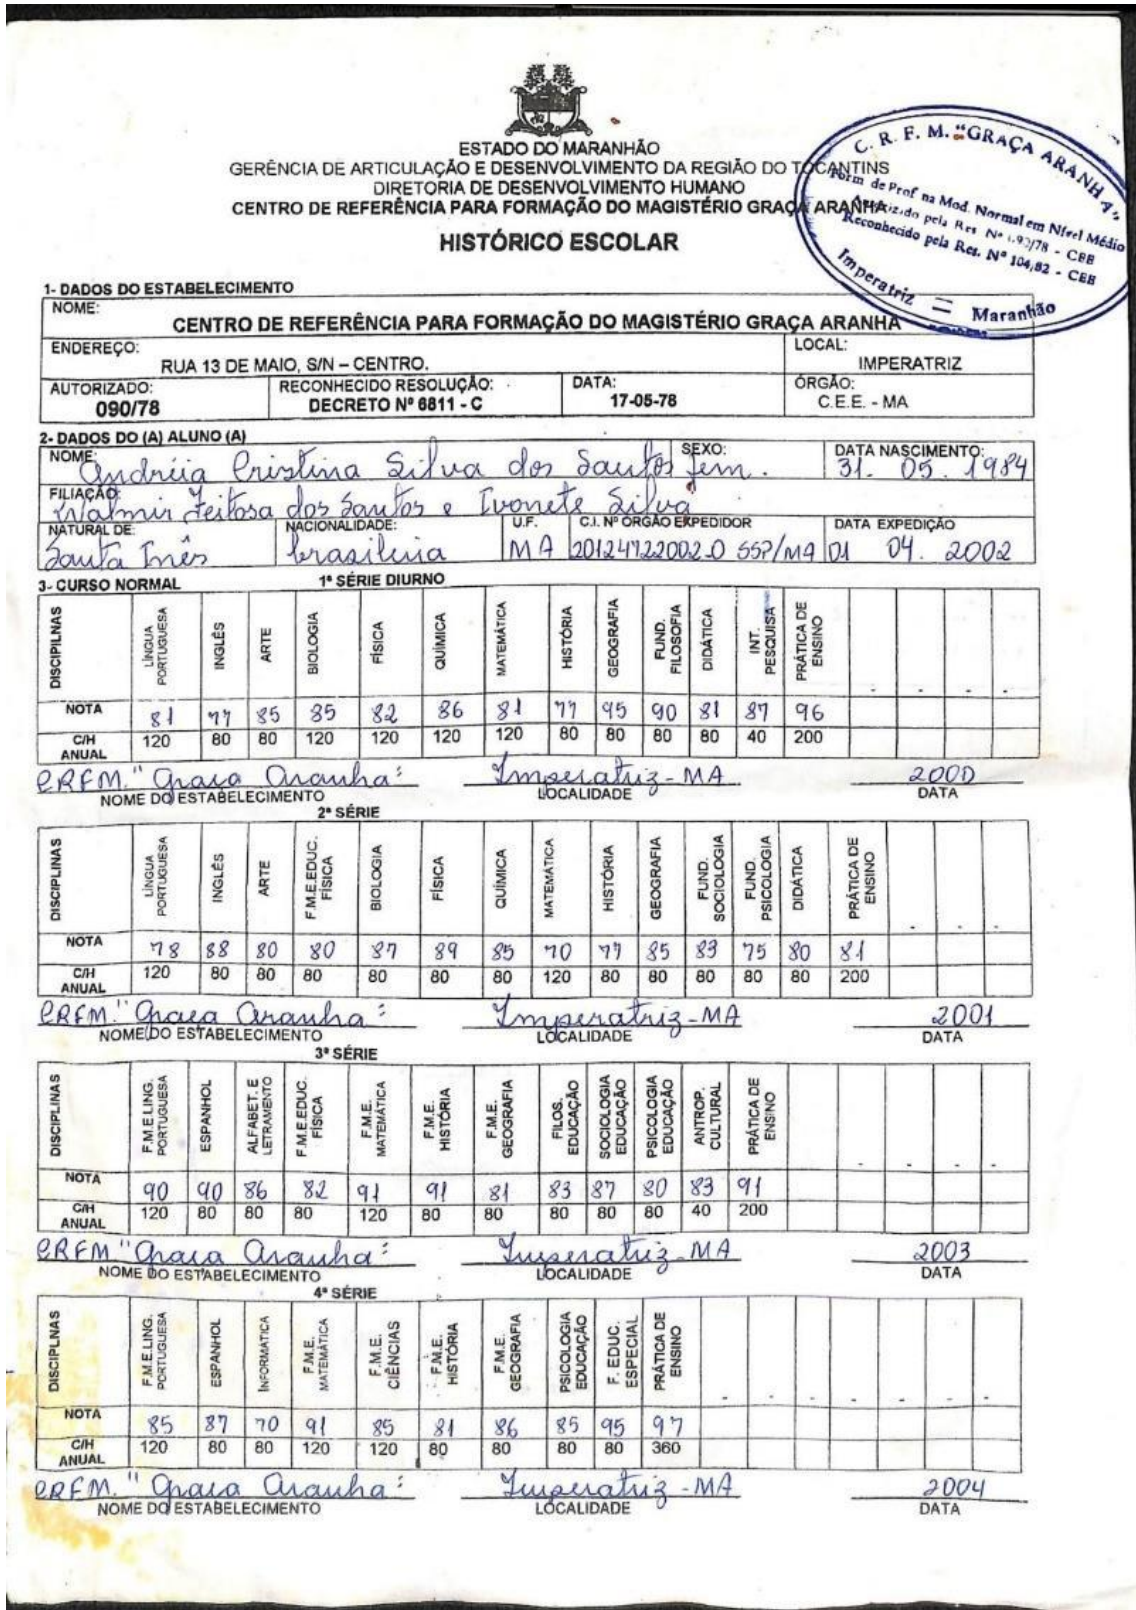 ESTADO DO MARANHÃO
GERÊNCIA DE ARTICULAÇÃO E DESENVOLVIMENTO DA REGIÃO DO TOCANTINS
DIRETORIA DE DESENVOLVIMENTO HUMANO
CENTRO DE REFERÊNCIA PARA FORMAÇÃO DO MAGISTÉRIO GRAÇA ARANHA
HISTÓRICO ESCOLAR
C. R. F. M. "GRAÇA ARANHA"
Form de Prof na Mod. Normal em Nível Médio
pela Res. Nº - CEB
Reconhecido pela Res. Nº 104/82 - CEB
Imperatriz = Maranhão
1- DADOS DO ESTABELECIMENTO
NOME:
CENTRO DE REFERÊNCIA PARA FORMAÇÃO DO MAGISTÉRIO GRAÇA ARANHA
ENDEREÇO: LOCAL:
RUA 13 DE MAIO, S/N – CENTRO. IMPERATRIZ
AUTORIZADO: RECONHECIDO RESOLUÇÃO: DATA: ÓRGÃO:
090/78 DECRETO Nº 6811 - C 17-05-78 C.E.E. - MA
2- DADOS DO (A) ALUNO (A)
NOME: SEXO: DATA NASCIMENTO:
Andréia Cristina Silva dos Santos fem. 31. 05. 1984
FILIAÇÃO:
Walmir Feitosa dos Santos e Ivonete Silva
NATURAL DE: NACIONALIDADE: U.F. C.I. Nº ÓRGÃO EXPEDIDOR DATA EXPEDIÇÃO
Santa Inês brasileira MA SSP/MA 01 04. 2002
3- CURSO NORMAL 1ª SÉRIE DIURNO
DISCIPILNAS LÍNGUA PORTUGUESA INGLÊS ARTE BIOLOGIA FÍSICA QUÍMICA MATEMÁTICA HISTÓRIA GEOGRAFIA FUND. FILOSOFIA DIDÁTICA INT. PESQUISA PRÁTICA DE ENSINO - - - -
NOTA 81 77 85 85 82 86 81 77 95 90 81 87 96
C/H ANUAL 120 80 80 120 120 120 120 80 80 80 80 40 200
CRFM. "Graça Aranha" Imperatriz-MA 2000
NOME DO ESTABELECIMENTO LOCALIDADE DATA
2ª SÉRIE
DISCIPLINAS LÍNGUA PORTUGUESA INGLÊS ARTE F.M.E.EDUC. FÍSICA BIOLOGIA FÍSICA QUÍMICA MATEMÁTICA HISTÓRIA GEOGRAFIA FUND. SOCIOLOGIA FUND. PSICOLOGIA DIDÁTICA PRÁTICA DE ENSINO - - -
NOTA 78 88 80 80 87 89 85 70 77 85 83 75 80 81
C/H ANUAL 120 80 80 80 80 80 80 120 80 80 80 80 80 200
CRFM. "Graça Aranha" Imperatriz-MA 2001
NOME DO ESTABELECIMENTO LOCALIDADE DATA
3ª SÉRIE
DISCIPLINAS F.M.E.LING. PORTUGUESA ESPANHOL ALFABET. E LETRAMENTO F.M.E.EDUC. FÍSICA F.M.E. MATEMÁTICA F.M.E. HISTÓRIA F.M.E. GEOGRAFIA FILOS. EDUCAÇÃO SOCIOLOGIA EDUCAÇÃO PSICOLOGIA EDUCAÇÃO ANTROP. CULTURAL PRÁTICA DE ENSINO - - - -
NOTA 90 90 86 82 91 91 81 83 87 80 83 91
C/H ANUAL 120 80 80 80 120 80 80 80 80 80 40 200
CRFM. "Graça Aranha" Imperatriz-MA 2003
NOME DO ESTABELECIMENTO LOCALIDADE DATA
4ª SÉRIE
DISCIPLNAS F.M.E.LING. PORTUGUESA ESPANHOL INFORMATICA F.M.E. MATEMÁTICA F.M.E. CIÊNCIAS F.M.E. HISTÓRIA F.M.E. GEOGRAFIA PSICOLOGIA EDUCAÇÃO F. EDUC. ESPECIAL PRÁTICA DE ENSINO - - - - - -
NOTA 85 87 70 91 85 81 86 85 95 97
C/H ANUAL 120 80 80 120 120 80 80 80 80 360
CRFM. "Graça Aranha" Imperatriz-MA 2004
NOME DO ESTABELECIMENTO LOCALIDADE DATA